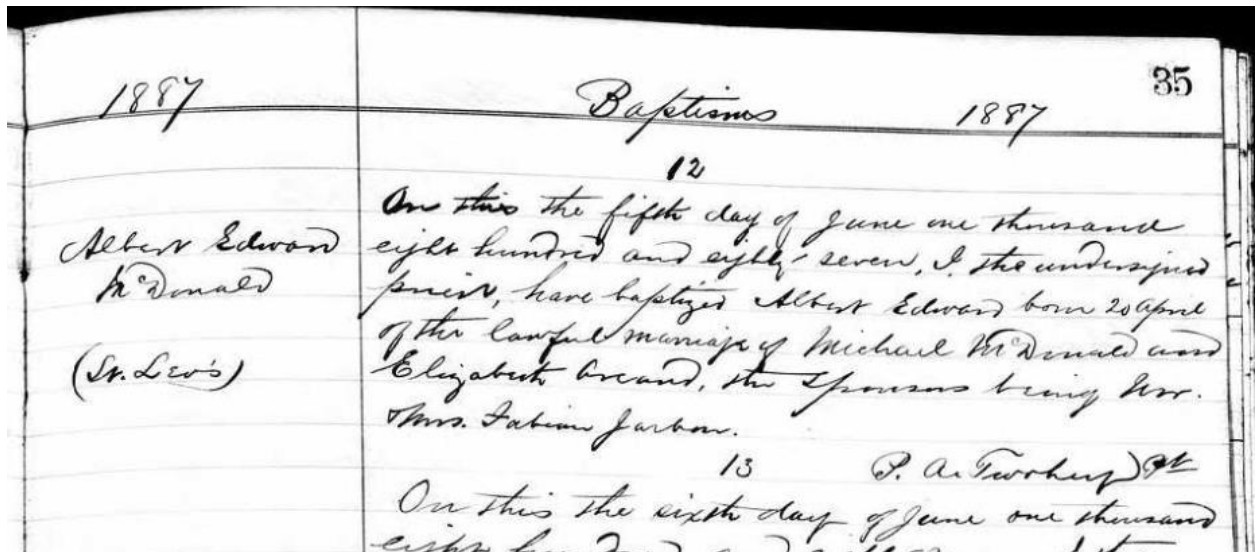 35
1887 Baptisms 1887
12
Albert Edward
McDonald
(St. Leo's)
On this the fifth day of June one thousand
eight hundred and eighty seven, I, the undersigned
priest, have baptized Albert Edward born 20 April
of the lawful marriage of Michael McDonald and
Elizabeth Arcand, the sponsors being Mr.
Mrs. Fabian
13 P. A. Twohey Pt
On this the sixth day of June one thousand
eight hundred and